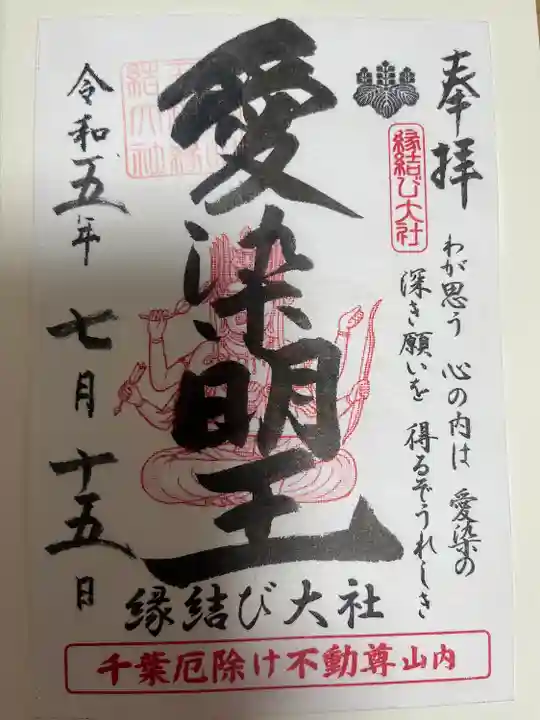 奉拝
縁結び大社
わが思う 心の内は 愛染の
深き願いを 得るぞうれしき
愛染明王
令和五年 七月十五日
縁結び大社
千葉厄除け不動尊山内